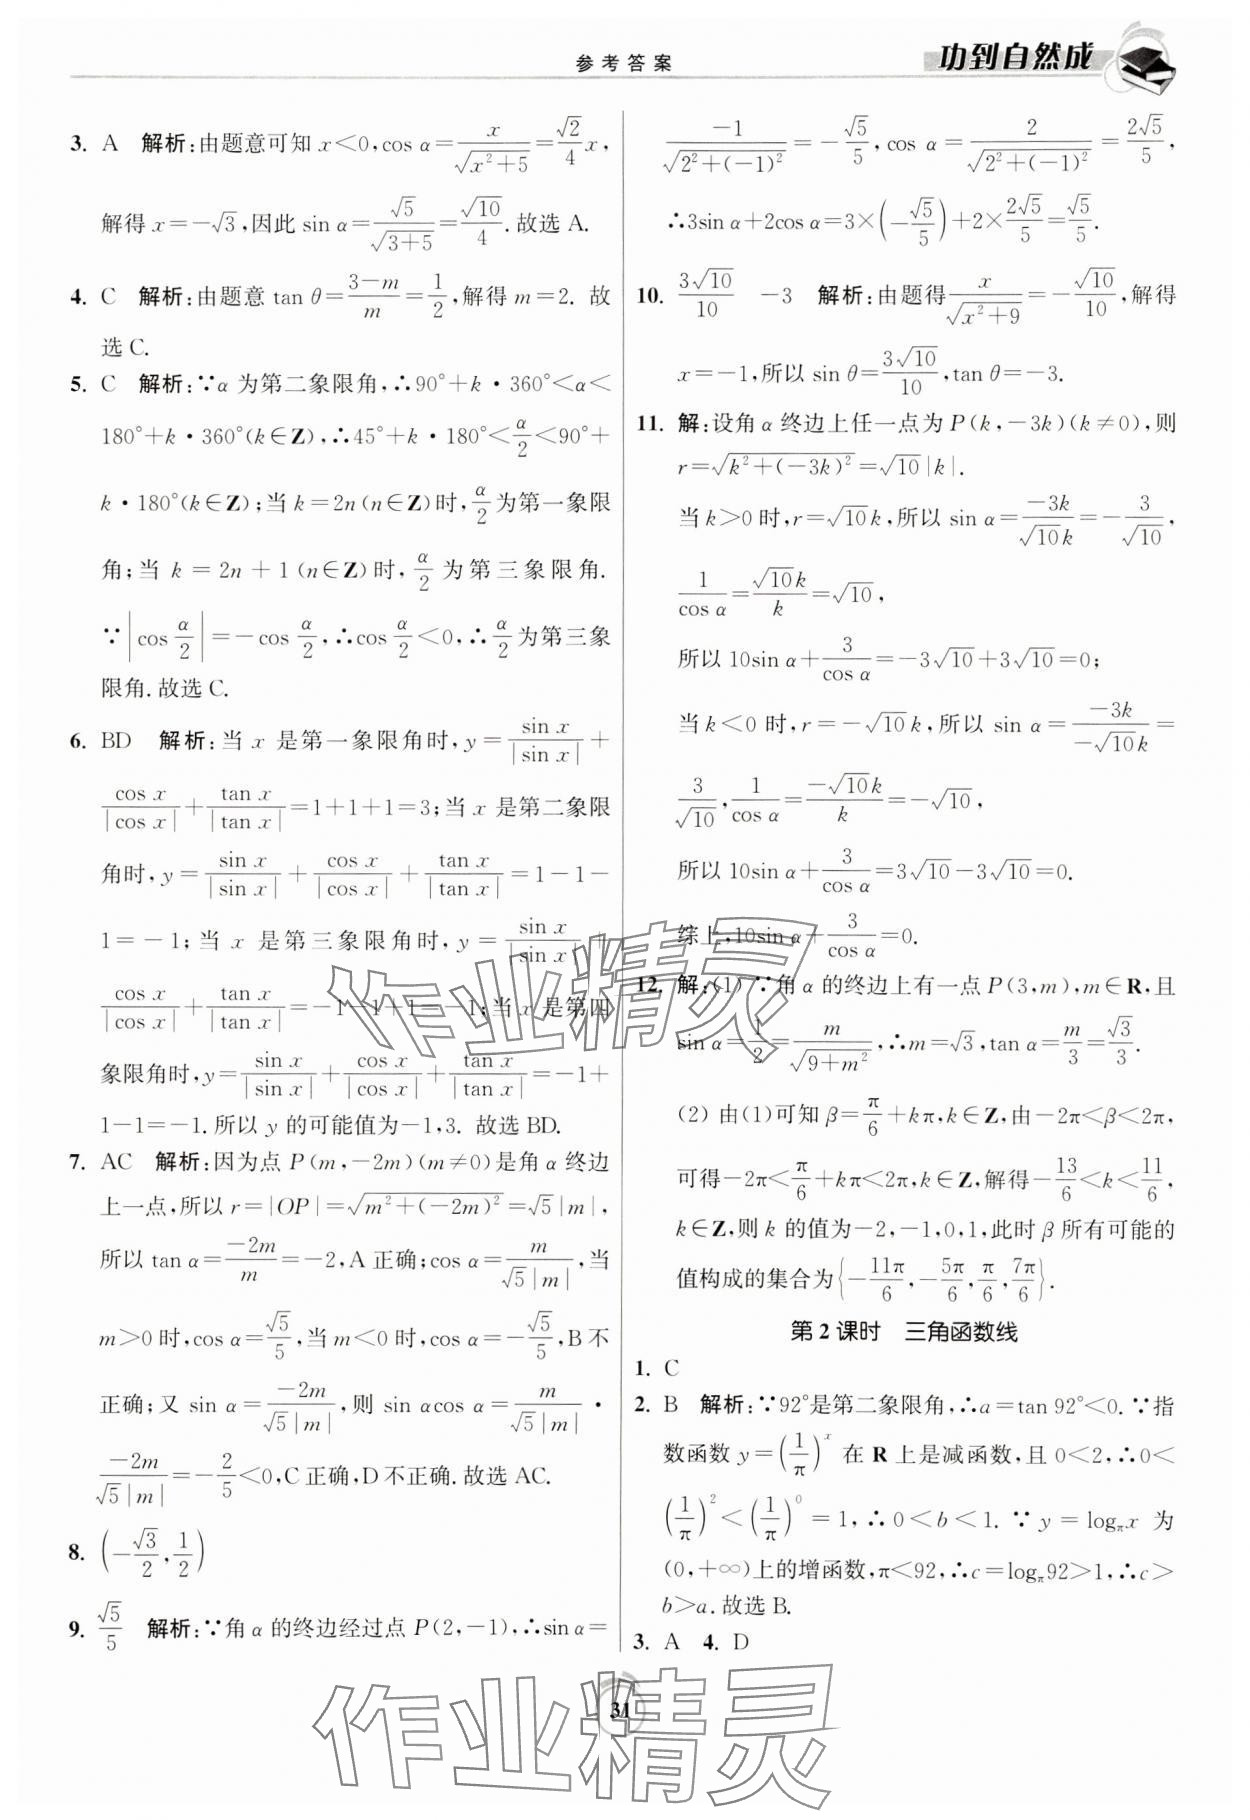 参考答案
功到自然成
3. A 解析:由题意可知 x<0,cos α=x/√(x²+5)=(√2/4)x,
解得 x=-√3,因此 sin α=√5/√(3+5)=√10/4.故选 A.
4. C 解析:由题意 tan θ=(3-m)/m=1/2,解得 m=2. 故
选 C.
5. C 解析:∵α 为第二象限角,∴90°+k·360°<α<
180°+k·360°(k∈Z),∴45°+k·180°<α/2<90°+
k·180°(k∈Z);当 k=2n(n∈Z)时,α/2为第一象限
角;当 k=2n+1(n∈Z)时,α/2 为第三象限角.
∵|cos α/2|=-cos α/2,∴cos α/2<0,∴α/2为第三象
限角.故选 C.
6. BD 解析:当 x 是第一象限角时,y=sin x/|sin x|+
cos x/|cos x|+tan x/|tan x|=1+1+1=3;当 x 是第二象限
角时,y=sin x/|sin x|+cos x/|cos x|+tan x/|tan x|=1-1-
1=-1;当 x 是第三象限角时,y=sin x/|sin x|+
cos x/|cos x|+tan x/|tan x|=-1-1+1=-1;当 x 是第四
象限角时,y=sin x/|sin x|+cos x/|cos x|+tan x/|tan x|=-1+
1-1=-1.所以 y 的可能值为-1,3. 故选 BD.
7. AC 解析:因为点 P(m,-2m)(m≠0)是角 α 终边
上一点,所以 r=|OP|=√(m²+(-2m)²)=√5|m|,
所以 tan α=-2m/m=-2,A 正确;cos α=m/(√5|m|),当
m>0 时,cos α=√5/5,当 m<0 时,cos α=-√5/5,B 不
正确;又 sin α=-2m/(√5|m|),则 sin αcos α=m/(√5|m|)·
-2m/(√5|m|)=-2/5<0,C 正确,D 不正确.故选 AC.
8. (-√3/2,1/2)
9. √5/5 解析:∵角 α 的终边经过点 P(2,-1),∴sin α=
-1/√(2²+(-1)²)=-√5/5,cos α=2/√(2²+(-1)²)=2√5/5,
∴3sin α+2cos α=3×(-√5/5)+2×2√5/5=√5/5.
10. 3√10/10 -3 解析:由题得x/√(x²+9)=-√10/10,解得
x=-1,所以 sin θ=3√10/10,tan θ=-3.
11. 解:设角 α 终边上任一点为 P(k,-3k)(k≠0),则
r=√(k²+(-3k)²)=√10|k|.
当 k>0 时,r=√10k,所以 sin α=-3k/(√10k)=-3/√10,
1/cos α=√10k/k=√10,
所以 10sin α+3/cos α=-3√10+3√10=0;
当 k<0 时,r=-√10k,所以 sin α=-3k/(-√10k)=
3/√10,1/cos α=-√10k/k=-√10,
所以 10sin α+3/cos α=3√10-3√10=0.
综上,10sin α+3/cos α=0.
12. 解:(1)∵角 α 的终边上有一点 P(3,m),m∈R,且
sin α=1/2=m/√(9+m²),∴m=√3,tan α=m/3=√3/3.
(2) 由(1)可知 β=π/6+kπ,k∈Z,由-2π<β<2π,
可得-2π<π/6+kπ<2π,k∈Z,解得-13/6<k<11/6,
k∈Z,则 k 的值为-2,-1,0,1,此时 β 所有可能的
值构成的集合为{-11π/6,-5π/6,π/6,7π/6}.
第 2 课时 三角函数线
1. C
2. B 解析:∵92°是第二象限角,∴a=tan 92°<0.∵指
数函数 y=(1/π)^x 在 R 上是减函数,且 0<2,∴0<
(1/π)²<(1/π)⁰=1,∴0<b<1.∵y=log_π x 为
(0,+∞)上的增函数,π<92,∴c=log_π 92>1,∴c>
b>a.故选 B.
3. A 4. D
31
作业精灵
作业精灵